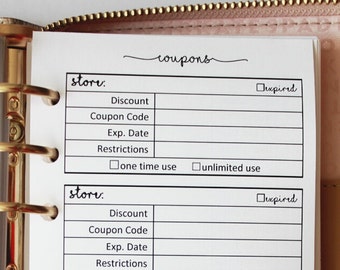 coupons
store: expired
Discount
Coupon Code
Exp. Date
Restrictions
one time use unlimited use
store: expired
Discount
Coupon Code
Exp. Date
Restrictions